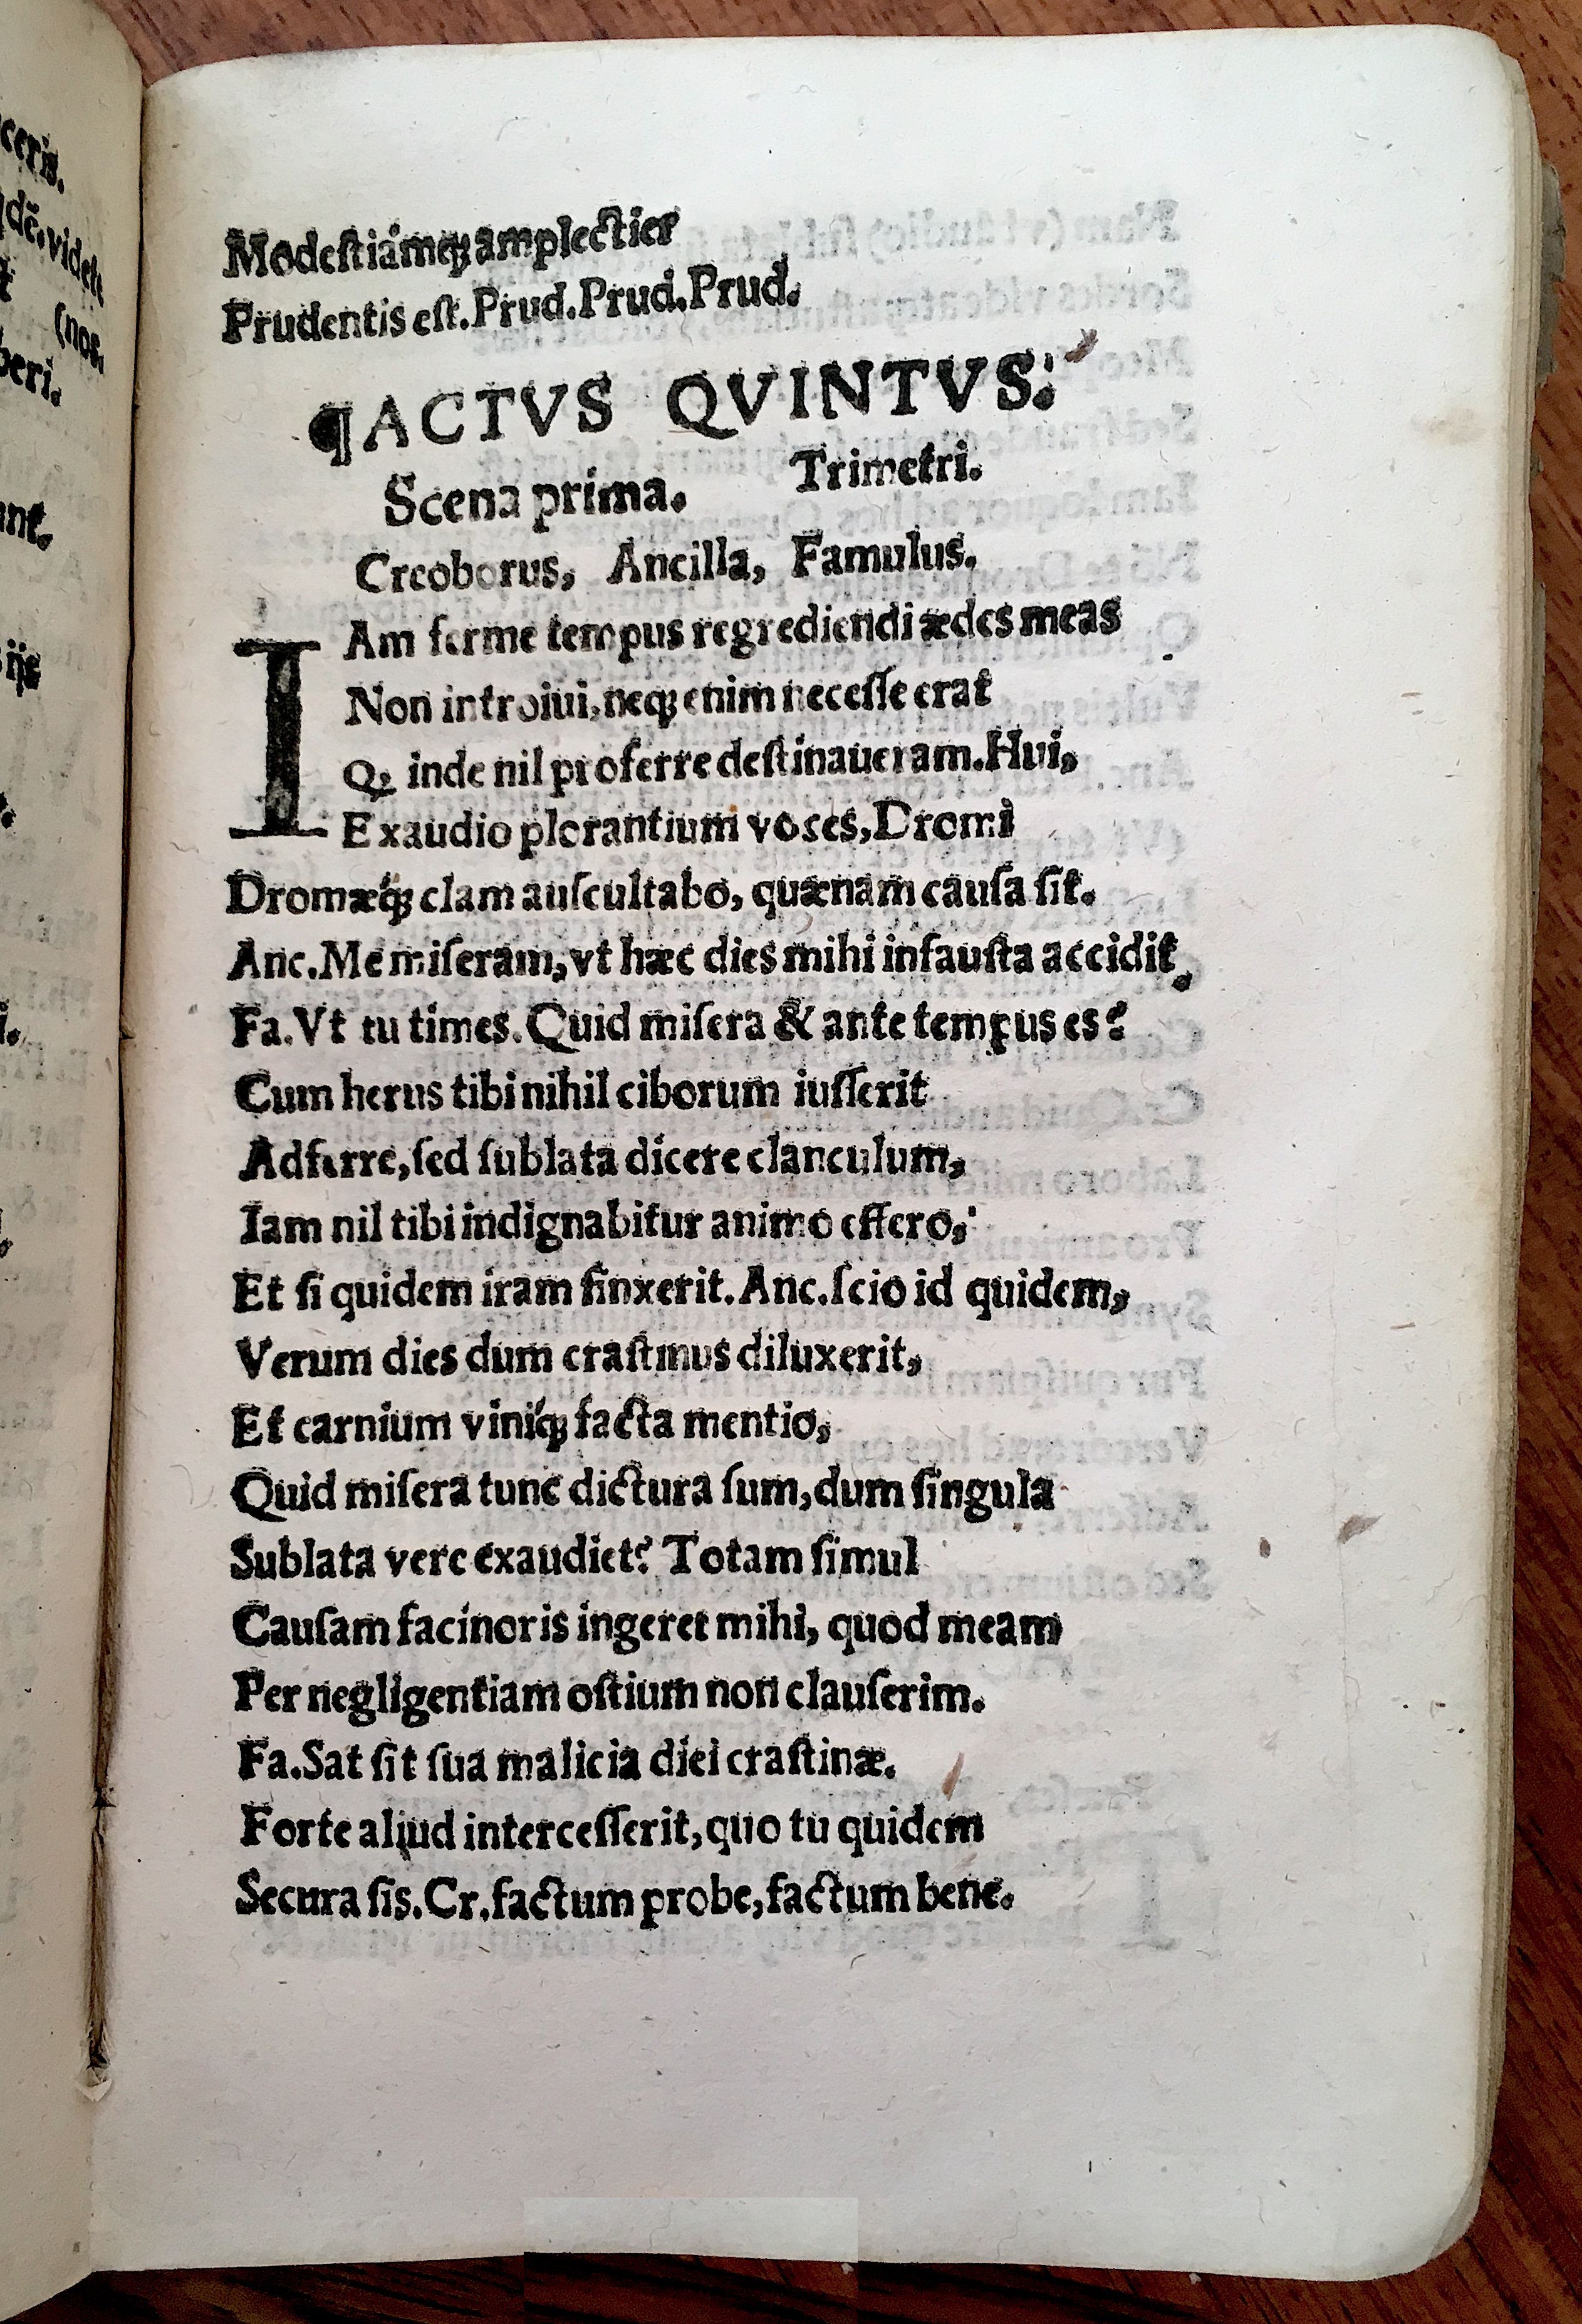 ceris.
dē.videt
(nos.
beri.
unt.
ijs
Modeſtiámq; amplectier
Prudentis eſt. Prud. Prud. Prud.
¶ACTVS QVINTVS.
Scena prima. Trimetri.
Creoborus, Ancilla, Famulus.
IAm ferme tempus regrediendi ædes meas
Non introiui, neq; enim neceſſe erat
Q; inde nil proferre deſtinaueram. Hui,
Exaudio plorantium voces, Dromi
Dromæq́; clam auſcultabo, quænam cauſa ſit.
Anc. Me miſeram, vt hæc dies mihi infauſta accidit.
Fa. Vt tu times. Quid miſera & ante tempus es?
Cum herus tibi nihil ciborum iuſſerit
Adferre, ſed ſublata dicere clanculum,
Iam nil tibi indignabitur animo effero,
Et ſi quidem iram finxerit. Anc. ſcio id quidem,
Verum dies dum craſtinus diluxerit,
Et carnium viniq́; facta mentio,
Quid miſera tunc dictura ſum, dum ſingula
Sublata vere exaudiet? Totam ſimul
Cauſam facinoris ingeret mihi, quod meam
Per negligentiam oſtium non clauſerim.
Fa. Sat ſit ſua malicia diei craſtinæ.
Forte aliud interceſſerit, quo tu quidem
Secura ſis. Cr. factum probe, factum bene.